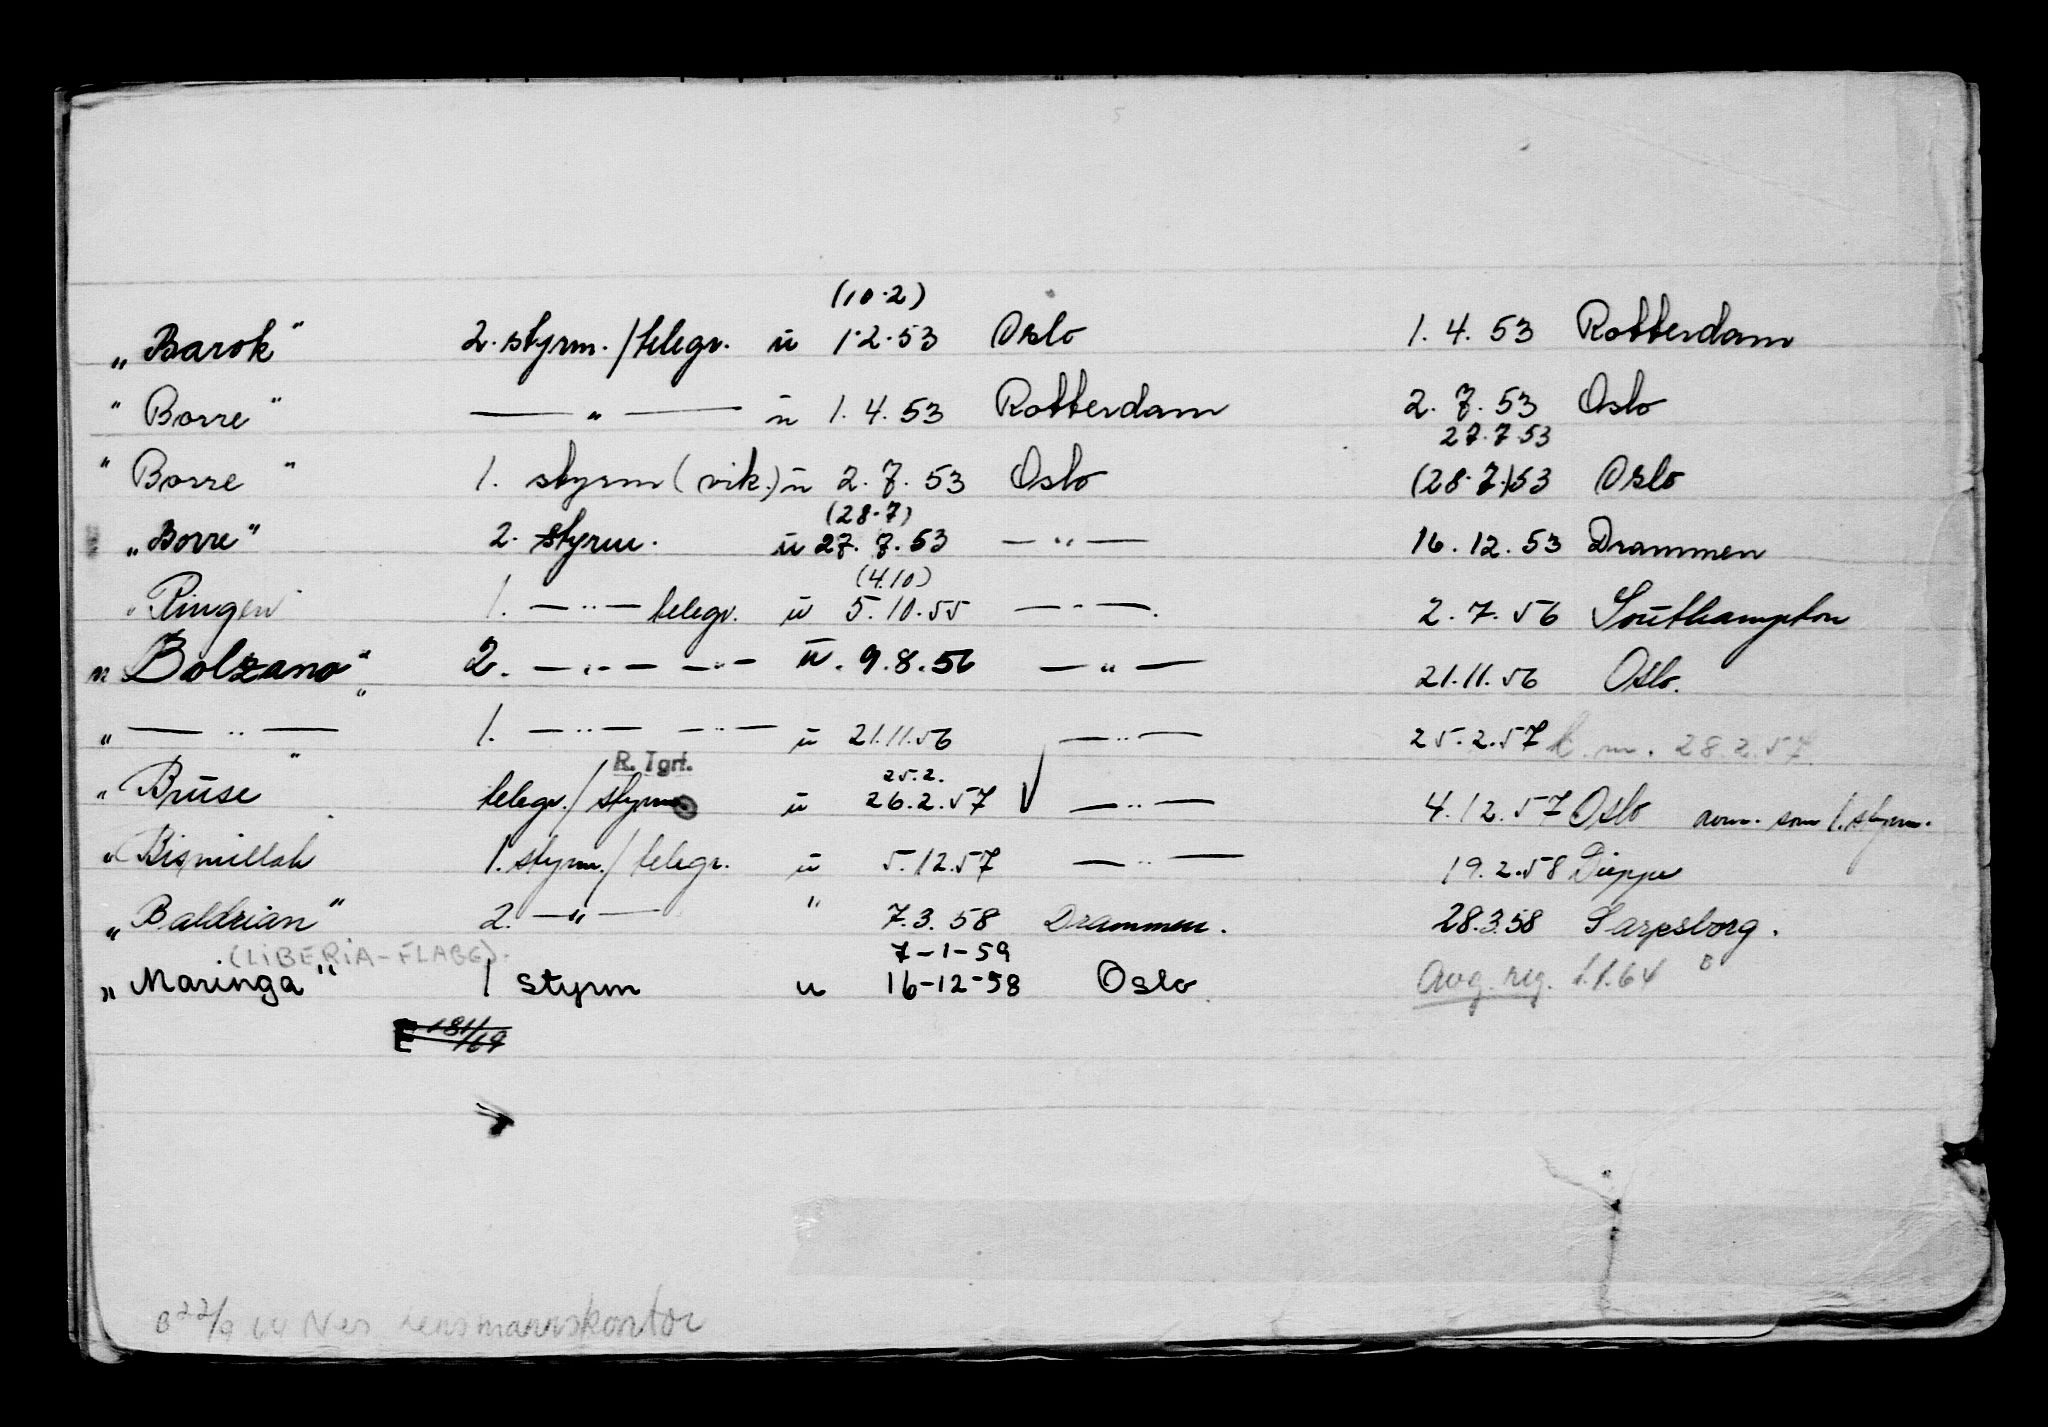 (10.2)
„Barok" 2. styrm./telegr. u 1.2.53 Oslo 1.4.53 Rotterdam
" Borre " — " — u 1.4.53 Rotterdam 2.7.53 Oslo
27.7.53
" Borre " 1. styrm (vik.) u 2.7.53 Oslo (28.7.)53 Oslo
(28.7)
„Borre" 2. styrm. u 27.7.53 — " — 16.12.53 Drammen
(4.10)
"Ringen" 1. — " — telegr. u 5.10.55 — " —. 2.7.56 Southampton
" Bolzano" 2. — " — — " — u. 9.8.56 — " — 21.11.56 Oslo.
" — " — " 1. — " — — " — u 21.11.56 — " — 25.2.57 28.2.57
R. Tgrf. 25.2.
" Bruse " telegr./styrm. u 26.2.57 √ — " — 4.12.57 Oslo som 1. styrm.
" Bismillah 1. styrm./telegr. u 5.12.57 — " — 19.2.58 Dieppe
„Baldrian" 2. — " — " 7.3.58 Drammen. 28.3.58 Sarpsborg.
(LIBERIA-FLAGG). 7-1-59
„Maringa" 1 styrm u 16-12-58 Oslo Avg. reg. 1.1.64
E 181/69
B 22/9 64 Nes lensmannskontor